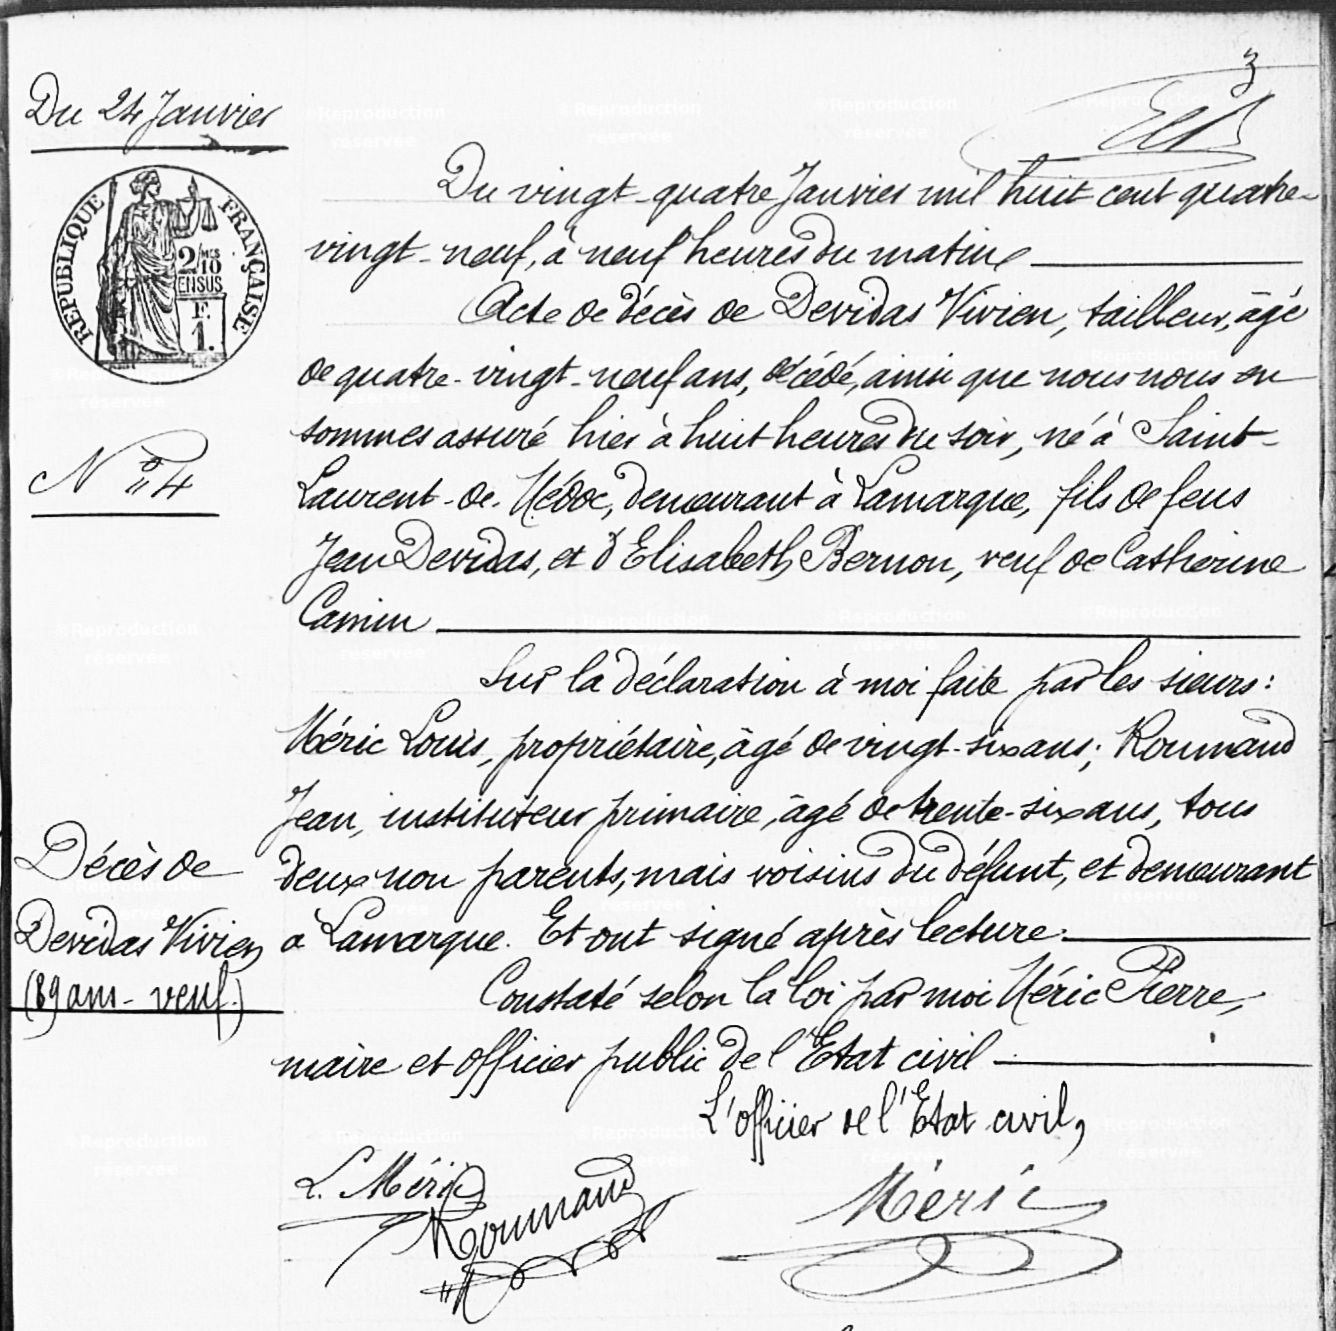 3
Du 24 Janvier
Du vingt-quatre Janvier mil huit cent quatre-
vingt-neuf, à neuf heures du matin
RÉPUBLIQUE FRANÇAISE
2/10 MES
EN SUS
F.
1.
Acte de décès de Devidas Vivien, tailleur, âgé
de quatre-vingt-neuf ans, décédé, ainsi que nous nous en
sommes assuré hier à huit heures du soir, né à Saint-
N° 4
Laurent-de-Médoc, demeurant à Lamarque, fils de feus
Jean Devidas, et d'Elisabeth Bernon, veuf de Catherine
Camin
Sur la déclaration à moi faite par les sieurs:
Méric Louis, propriétaire, âgé de vingt-six ans; Roumand
Jean, instituteur primaire, âgé de trente-six ans, tous
Décès de
Devidas Vivien
(89 ans - veuf.)
deux non parents, mais voisins du défunt, et demeurant
à Lamarque. Et ont signé après lecture.
Constaté selon la loi par moi Méric Pierre,
maire et officier public de l'Etat civil
L'officier de l'Etat civil,
L. Méric
Roumand
Méric